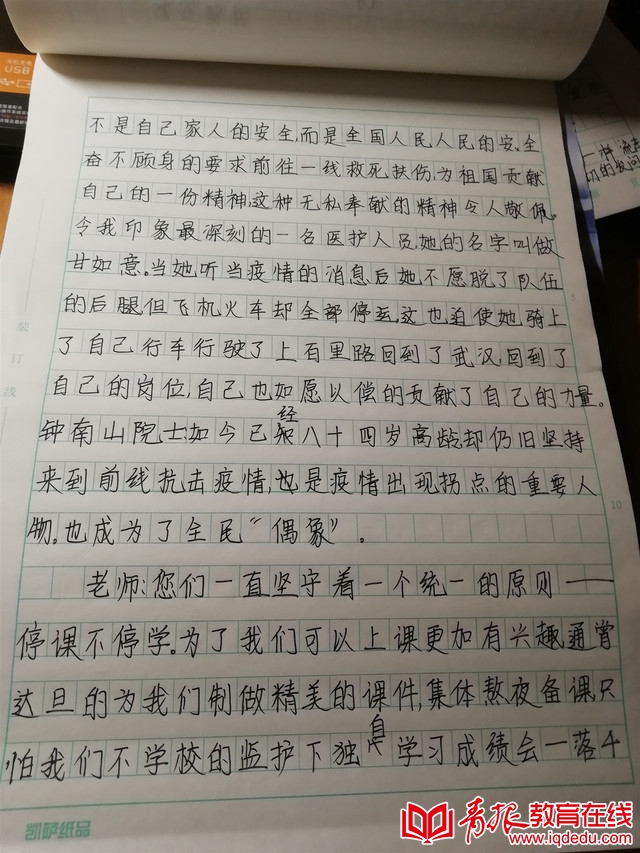 不是自己家人的安全,而是全国人民人民的安全
奋不顾身的要求前往一线救死扶伤,为祖国贡献
自己的一份精神,这种无私奉献的精神令人敬佩。
令我印象最深刻的一名医护人员,她的名字叫做
甘如意。当她听当疫情的消息后她不愿脱了队伍
的后腿,但飞机火车却全部停运,这也迫使她骑上
了自己行车行驶了上百里路回到了武汉,回到了
自己的岗位,自己也如愿以偿的贡献了自己的力量。
钟南山院士:如今已经八十四岁高龄却仍旧坚持
来到前线抗击疫情,也是疫情出现拐点的重要人
物。也成为了全民“偶象”。
老师:您们一直坚守着一个统一的原则——
停课不停学。为了我们可以上课更加有兴趣通宵
达旦的为我们制做精美的课件,集体熬夜备课,只
怕我们不学校的监护下独自学习成绩会一落千
10
凯萨纸品
装订线
USB
青报教育在线
www.iqdedu.com